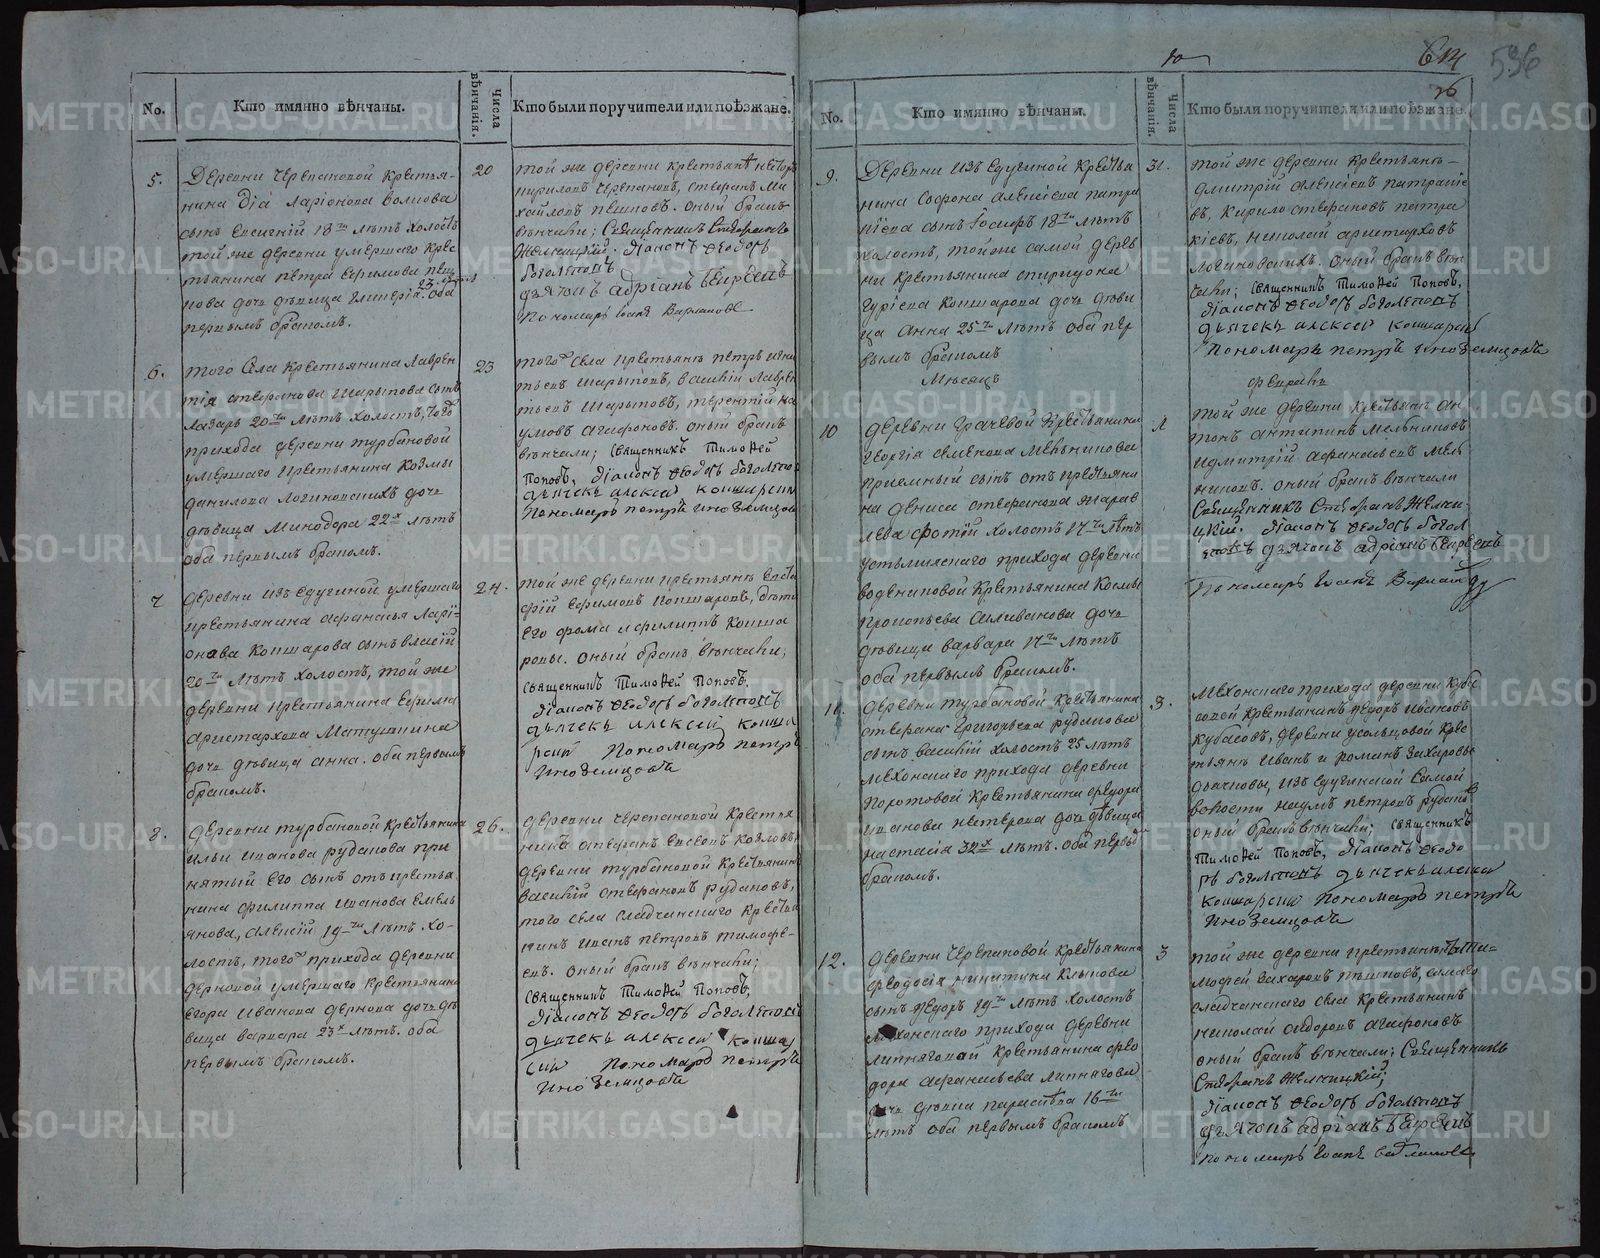 No.
Кто имянно вѣнчаны.
Числа вѣнчанія.
Кто были поручители или поѣзжане.
5.
Деревни Черепановой крестья-
нина Діа Ларіонова Волкова
сынъ Евсигній 18ти лѣтъ холостъ
той же деревни умершаго крес
тьянина Петра Ефимова
нова дочь дѣвица Гликерія. оба
первымъ бракомъ.
20
той же деревни крестьяне
Кириловъ Черепановъ, Стефанъ Ми
хайловъ Пѣшковъ. оный бракъ
вѣнчали; Священникъ Стефанъ
Желницкій. Діаконъ Ѳеодоръ
Боголѣповъ
Дьячокъ Адріанъ
Пономарь Іоаннъ
6.
того села крестьянина Лаврен
тія Стефанова Шарыпова сынъ
Лазарь 20ти лѣтъ холостъ, того
прихода деревни Турбановой
умершаго крестьянина Козмы
Данилова Логиновскихъ дочь
дѣвица Минодора 22хъ лѣтъ
оба первымъ бракомъ.
23
того села крестьяне Петръ Игна
тьевъ Шарыповъ, Василій Лаврен
тьевъ Шарыповъ, Терентій На
умовъ Агафоновъ. оный бракъ
вѣнчали; Священникъ Тимоѳей
Поповъ, Діаконъ Ѳеодоръ Боголѣпов
Дьячекъ Алексей Кокшарскій
Пономарь Петръ Иноземцовъ
7
деревни Изъедугиной умершаго
крестьянина Афанасья Ларі-
онова Кокшарова сынъ Власій
20ти лѣтъ холостъ, той же
деревни крестьянина Ефима
Аристархова Матушкина
дочь дѣвица Анна. оба первымъ
бракомъ.
24.
той же деревни крестьяне Евста
фій Ефимовъ Кокшаровъ, дѣти
его Фома и Филиппъ Кокша
ровы. оный бракъ вѣнчали;
Священникъ Тимоѳей Поповъ.
Діаконъ Ѳеодоръ Боголѣповъ
Дьячекъ Алексей Кокша
рскій Пономарь Петръ
Иноземцовъ
8.
деревни Турбановой крестьянина
Ильи Иванова Рудакова при
нятый его сынъ отъ крестья
нина Филиппа Иванова Емель
янова, Алексій 19ти лѣтъ хо-
лостъ, того прихода деревни
Дерновой умершаго крестьянина
Егора Иванова Дернова дочь дѣ
вица Варвара 23хъ лѣтъ. оба
первымъ бракомъ.
26.
деревни Черепановой крестья
нинъ Стефанъ Евсеевъ Козловъ,
деревни Турбановой крестьянинъ
Василій Стефановъ Рудаковъ,
того села Сладчанскаго крестья
нинъ Иванъ Петровъ Тимофе-
евъ. оный бракъ вѣнчали;
Священникъ Тимоѳей Поповъ,
Діаконъ Ѳеодоръ Боголѣповъ
Дьячекъ Алексей Кокшар
скій Пономарь Петръ
Иноземцовъ
596
No.
Кто имянно вѣнчаны.
Числа вѣнчанія.
Кто были поручители или поѣзжане.
9.
Деревни Изъедугиной крестья
нина Софона Алексіева Патра
кіева сынъ 18ти лѣтъ
холостъ, той же самой дерев
ни крестьянина Спиридона
Гуріева Кокшарова дочь дѣви
ца Анна 25ти лѣтъ оба пер
вымъ бракомъ
31.
той же деревни крестьяне
Дмитрій Алексіевъ Патракіе
въ, Кирило Стефановъ Патра
кіевъ, Николай Аристарховъ
Логиновскихъ. оный бракъ вѣн
чали; Священникъ Тимоѳей Поповъ,
Діаконъ Ѳеодоръ Боголѣповъ
Дьячекъ Алексей Кокшарскій
Пономарь Петръ Иноземцовъ
Мѣсяцъ
февраль
10
деревни Грачевой крестьянина
Георгія Семенова Мельникова
пріемный сынъ отъ крестьяни
на Дениса Стефанова Жарав
лева Фотій холостъ 17ти лѣтъ
Устьмиясскаго прихода деревни
Водениковой крестьянина Космы
Прокопьева Селиванова дочь
дѣвица Варвара 17ти лѣтъ
оба первымъ бракомъ.
1
той же деревни крестьяне Ан
тонъ Антипинъ Мельниковъ
и Дмитрій Афанасьевъ Мель
никовъ. оный бракъ вѣнчали
Священникъ Стефанъ Желни
цкій. Діаконъ Ѳеодоръ Богол
Дьячокъ Адріанъ
Пономарь Іоаннъ
11.
деревни Турбановой крестьянина
Стефана Григорьева Рудакова
сынъ Василій холостъ 25 лѣтъ
Мехонскаго прихода деревни
Поротовой крестьянина Федора
Иванова Нетерова дочь дѣвица
Настасія 32хъ лѣтъ. оба первы
бракомъ.
3.
Мехонскаго прихода деревни Куба
совой крестьянинъ Федоръ Ивановъ
Кубасовъ, деревни Усольцовой крес
тьяне Иванъ и Романъ Захаровы
Дьячковы, Изъедугинской самой
волости Наумъ Петровъ Рудаковъ
оный бракъ вѣнчали; Священникъ
Тимоѳей Поповъ, Діаконъ Ѳеодо
ръ Боголѣповъ Дьячекъ Алексей
Кокшарскій Пономарь Петръ
Иноземцовъ
12.
деревни Черепановой крестьянина
Феодосія Никитина Клыкова
сынъ Федоръ 19ти лѣтъ холостъ
Мехонскаго прихода деревни
Липняговой крестьянина Фео
дора Афанасьева Липнягова
дочь дѣвица Параскева 16ти
лѣтъ оба первымъ бракомъ
3
той же деревни крестьянинъ Ти-
мофей Захаровъ Пѣшковъ, самаго
Сладчанскаго села крестьянинъ
Николай Сидоровъ Агафоновъ
оный бракъ вѣнчали; Священникъ
Стефанъ Желницкій;
Діаконъ Ѳеодоръ Боголѣповъ
Дьячокъ Адріанъ
Пономарь Іоаннъ
METRIKI.GASO-URAL.RU